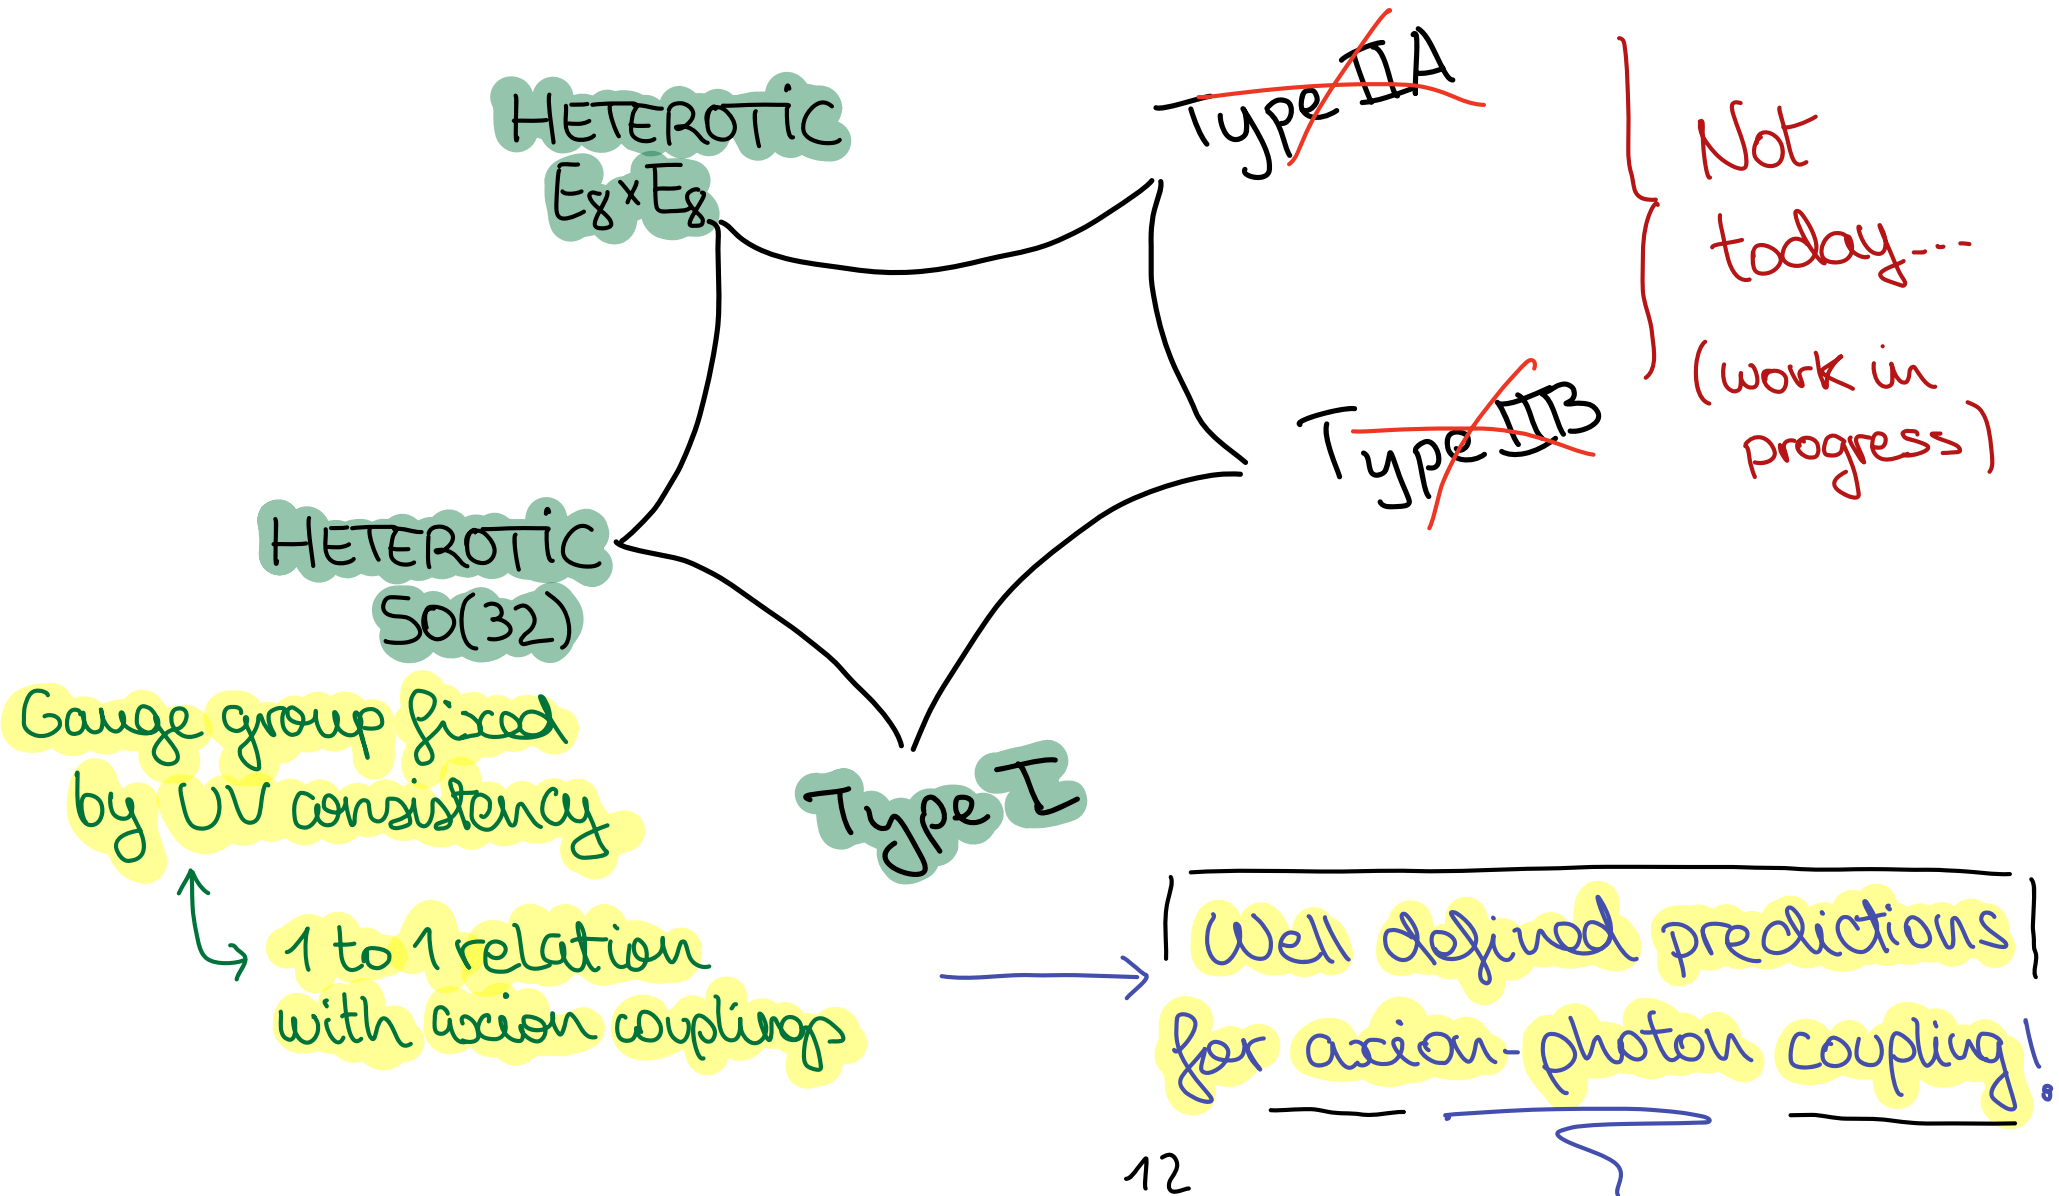 HETEROTIC
E8×E8
Type IIA
Not
today....
(work in
progress)
Type IIB
HETEROTIC
SO(32)
Gauge group fixed
by UV consistency
Type I
1 to 1 relation
with axion couplings
Well defined predictions
for axion-photon coupling!
12